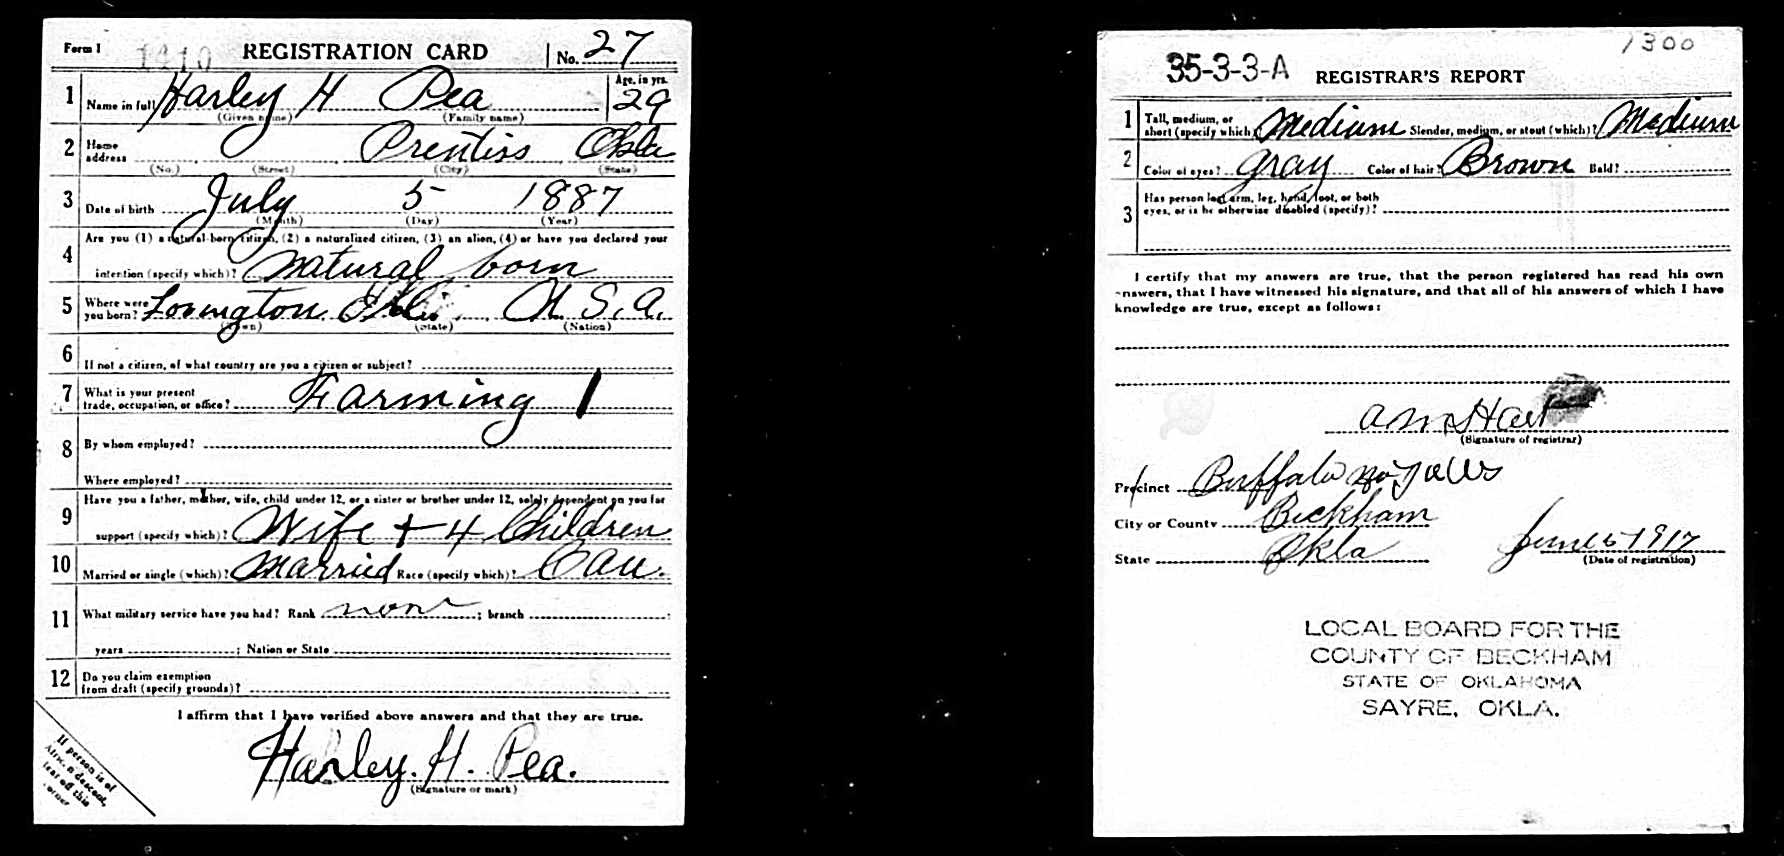 Form 1 1410 REGISTRATION CARD No. 27
1 Name in full Harley H Pea Age, in yrs. 29
(Given name) (Family name)
2 Home address Prentiss Okla
(No.) (Street) (City) (State)
3 Date of birth July 5 1887
(Month) (Day) (Year)
4 Are you (1) a natural-born citizen, (2) a naturalized citizen, (3) an alien, (4) or have you declared your
intention (specify which)? Natural born
5 Where were you born? Lovington U.S.A.
(Town) (State) (Nation)
6 If not a citizen, of what country are you a citizen or subject?
7 What is your present trade, occupation, or office? Farming 1
8 By whom employed?
Where employed?
9 Have you a father, mother, wife, child under 12, or a sister or brother under 12, solely dependent on you for
support (specify which)? Wife + 4 Children
10 Married or single (which)? Married Race (specify which)? Cau.
11 What military service have you had? Rank none ; branch ;
years ; Nation or State
12 Do you claim exemption
from draft (specify grounds)?
I affirm that I have verified above answers and that they are true.
Harley. H. Pea.
(Signature or mark)
If person is of
African descent,
tear off this
corner
1300
35-3-3-A REGISTRAR'S REPORT
1 Tall, medium, or short (specify which)? Medium Slender, medium, or stout (which)? Medium
2 Color of eyes? Gray Color of hair? Brown Bald?
3 Has person lost arm, leg, hand, foot, or both
eyes, or is he otherwise disabled (specify)?
I certify that my answers are true, that the person registered has read his own
answers, that I have witnessed his signature, and that all of his answers of which I have
knowledge are true, except as follows:
A M Hart
(Signature of registrar)
Precinct Buffalo
City or County Beckham
State Okla June 5 1917
(Date of registration)
LOCAL BOARD FOR THE
COUNTY OF BECKHAM
STATE OF OKLAHOMA
SAYRE, OKLA.